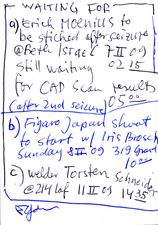 WAITING FOR
a) Erich Moenills to
be stiched after seizure
@Beth Israel 7 II 09
still waiting 02 15
for CAD Scan results
(after 2nd seizure) 05 00
b) Figaro Japan shoot
to start w/ Iris Brosch
Sunday 8 II 09 319 Grand
10 00
c) welder Torsten Schneider
@214 laf 11 II 09 14 35